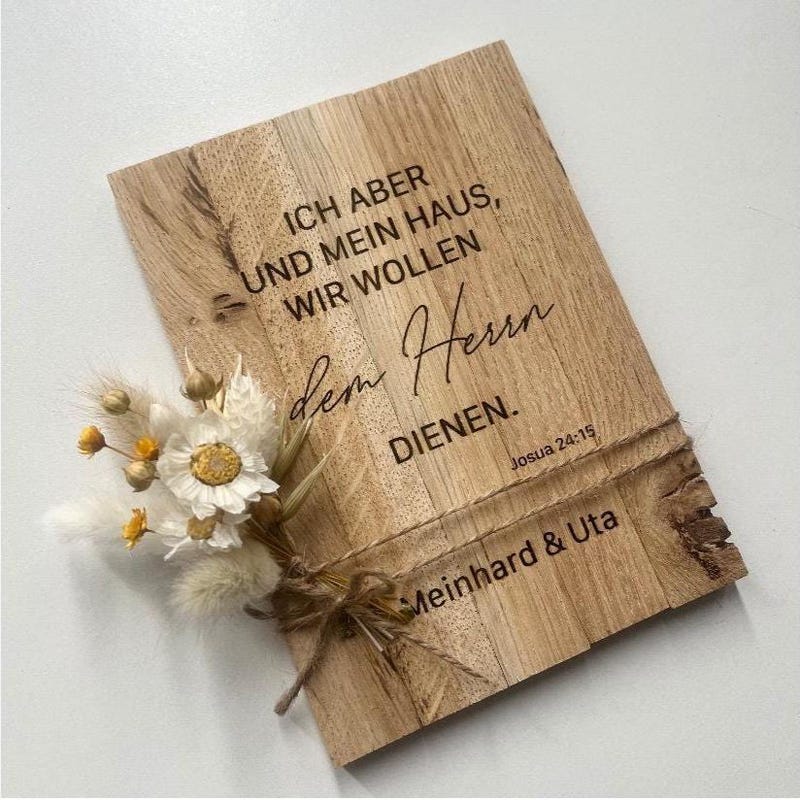 ICH ABER
UND MEIN HAUS,
WIR WOLLEN
dem Herrn
DIENEN.
Josua 24:15
Meinhard & Uta